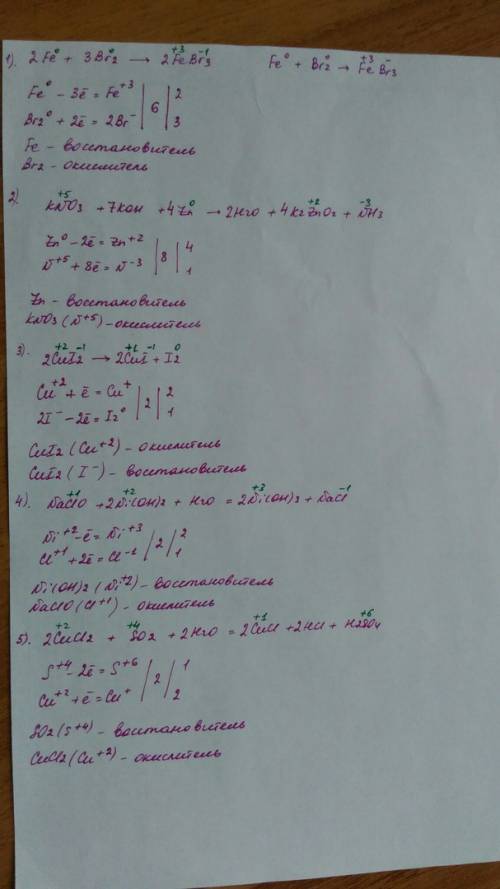 1). 2Fe⁰ + 3Br₂⁰ → 2Fe⁺³Br₃⁻¹ Fe⁰ + Br₂⁰ → Fe⁺³Br₃⁻
Fe⁰ - 3ē = Fe⁺³ | 6 | 2
Br₂⁰ + 2ē = 2Br⁻ | | 3
Fe - восстановитель
Br₂ - окислитель
2) KN⁺⁵O₃ + 7KOH + 4Zn⁰ → 2H₂O + 4K₂Zn⁺²O₂ + N⁻³H₃
Zn⁰ - 2ē = Zn⁺² | 8 | 4
N⁺⁵ + 8ē = N⁻³ | | 1
Zn - восстановитель
KNO₃ (N⁺⁵) - окислитель
3). 2Cu⁺²I₂⁻¹ → 2Cu⁺¹I⁻¹ + I₂⁰
Cu⁺² + ē = Cu⁺ | 2 | 2
2I⁻ - 2ē = I₂⁰ | | 1
CuI₂ (Cu⁺²) - окислитель
CuI₂ (I⁻) - восстановитель
4). NaCl⁺¹O + 2Ni⁺²(OH)₂ + H₂O = 2Ni⁺³(OH)₃ + NaCl⁻¹
Ni⁺² - ē = Ni⁺³ | 2 | 2
Cl⁺¹ + 2ē = Cl⁻¹ | | 1
Ni(OH)₂ (Ni⁺²) - восстановитель
NaClO (Cl⁺¹) - окислитель
5). 2Cu⁺²Cl₂ + S⁺⁴O₂ + 2H₂O = 2Cu⁺¹Cl + 2HCl + H₂S⁺⁶O₄
S⁺⁴ - 2ē = S⁺⁶ | 2 | 1
Cu⁺² + ē = Cu⁺ | | 2
SO₂ (S⁺⁴) - восстановитель
CuCl₂ (Cu⁺²) - окислитель